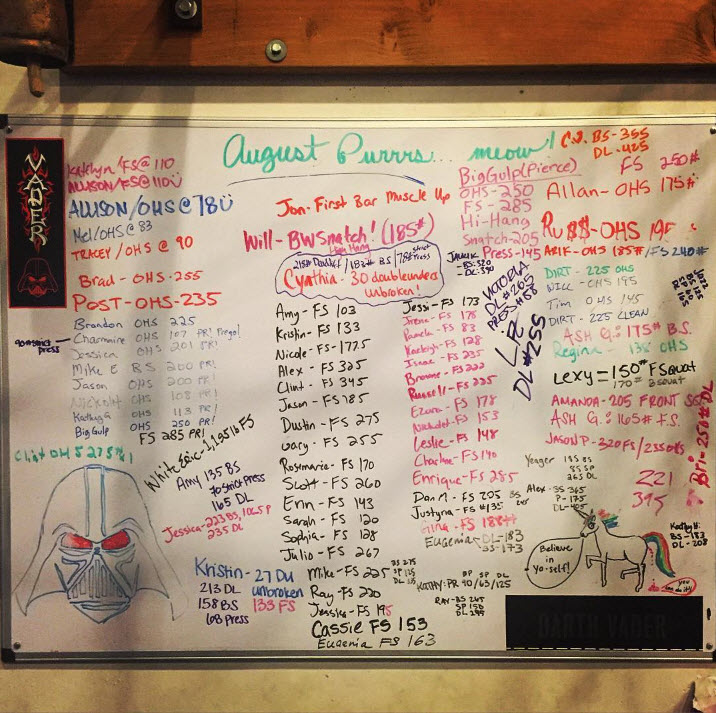 VADER
August Purrrs... meow!
Katelyn/FS@110
ALLISON/FS@110
ALLISON/OHS@78
Mel/OHS@83
TRACEY/OHS@90
Brad-OHS-255
POST-OHS-235
Brandon OHS 225
90# strict press
Charmaine OHS 107 PR! Prego!
Jessica OHS 201 PR!
Mike E BS 200 PR!
Jason OHS 200 PR!
OHS 108 PR!
Kathy G OHS 113 PR!
Big Gulp OHS 250 PR!
FS 285 PR!
Clint OHS 275#!
White Eric-1,195lb FS
Amy 135 BS
70 Strict Press
165 DL
Jessica-223 BS, 106 SP
235 DL
Kristin-27 DU
unbroken
213 DL
158 BS
133 FS
108 Press
Jon-First Bar Muscle Up
Will-BW Snatch! (185#)
High Hang
215# Deadlift/183# BS/78# Strict Press
Cynthia-30 doubleunders
Unbroken!
Amy-FS 103
Kristin-FS 133
Nicole-FS-177.5
Alex-FS 325
Clint-FS 345
Jason-FS 185
Dustin-FS 275
Gary-FS 255
Rosemarie-FS 170
Scott-FS 260
Erin-FS 143
Sarah-FS 120
Sophia-FS 128
Julio-FS 267
Mike-FS 225
BS 275
SP 135
Ray-FS 220
Jessica-FS 195
Cassie FS 153
Eugenia FS 163
Jessi-FS 173
Irene-FS 175
Pamela-FS 83
Kaeleigh-FS 128
Isaac-FS 235
Browne-FS 222
Russell-FS 225
Ezara-FS 178
FS 153
Leslie-FS 148
Charlene-FS 140
Enrique-FS 285
Dan M-FS 205
Justyna-FS #135
Gina-FS 188#
Eugenia-DL-183
BS-173
KATHY: PR 90/63/125
BP SP DL
RAY-BS 265
SP 150
DL 295
Big Gulp (Pierce)
OHS-250
FS-285
Hi-Hang
Snatch-205
Press-145
BS-320
DL-390
VICTORIA
DL #205
PRESS #58
Liz
DL #255
C.J. BS-355
DL-425
FS 250#
Allan-OHS 175#
Ru$$-OHS 195
ARIK-OHS 185#/FS 240#
DIRT-225 OHS
Nicc-OHS 195
Tim OHS 145
DIRT-225 CLEAN
ASH G.: 175# B.S.
Regina-135 OHS
Lexy=150# FSquat
170# BSquat
AMANDA-205 FRONT SQT
ASH G.: 165# F.S.
JASON P-320 FS/255 OHS
Bri-250# DL
Yeager 185 BS
85 SP
265 DL
Alex-BS 365
P-175
DL-405
221
395
Believe
in
yo-self!
Kathy H:
BS-183
DL-208
you
can do it!
DARTH VADER